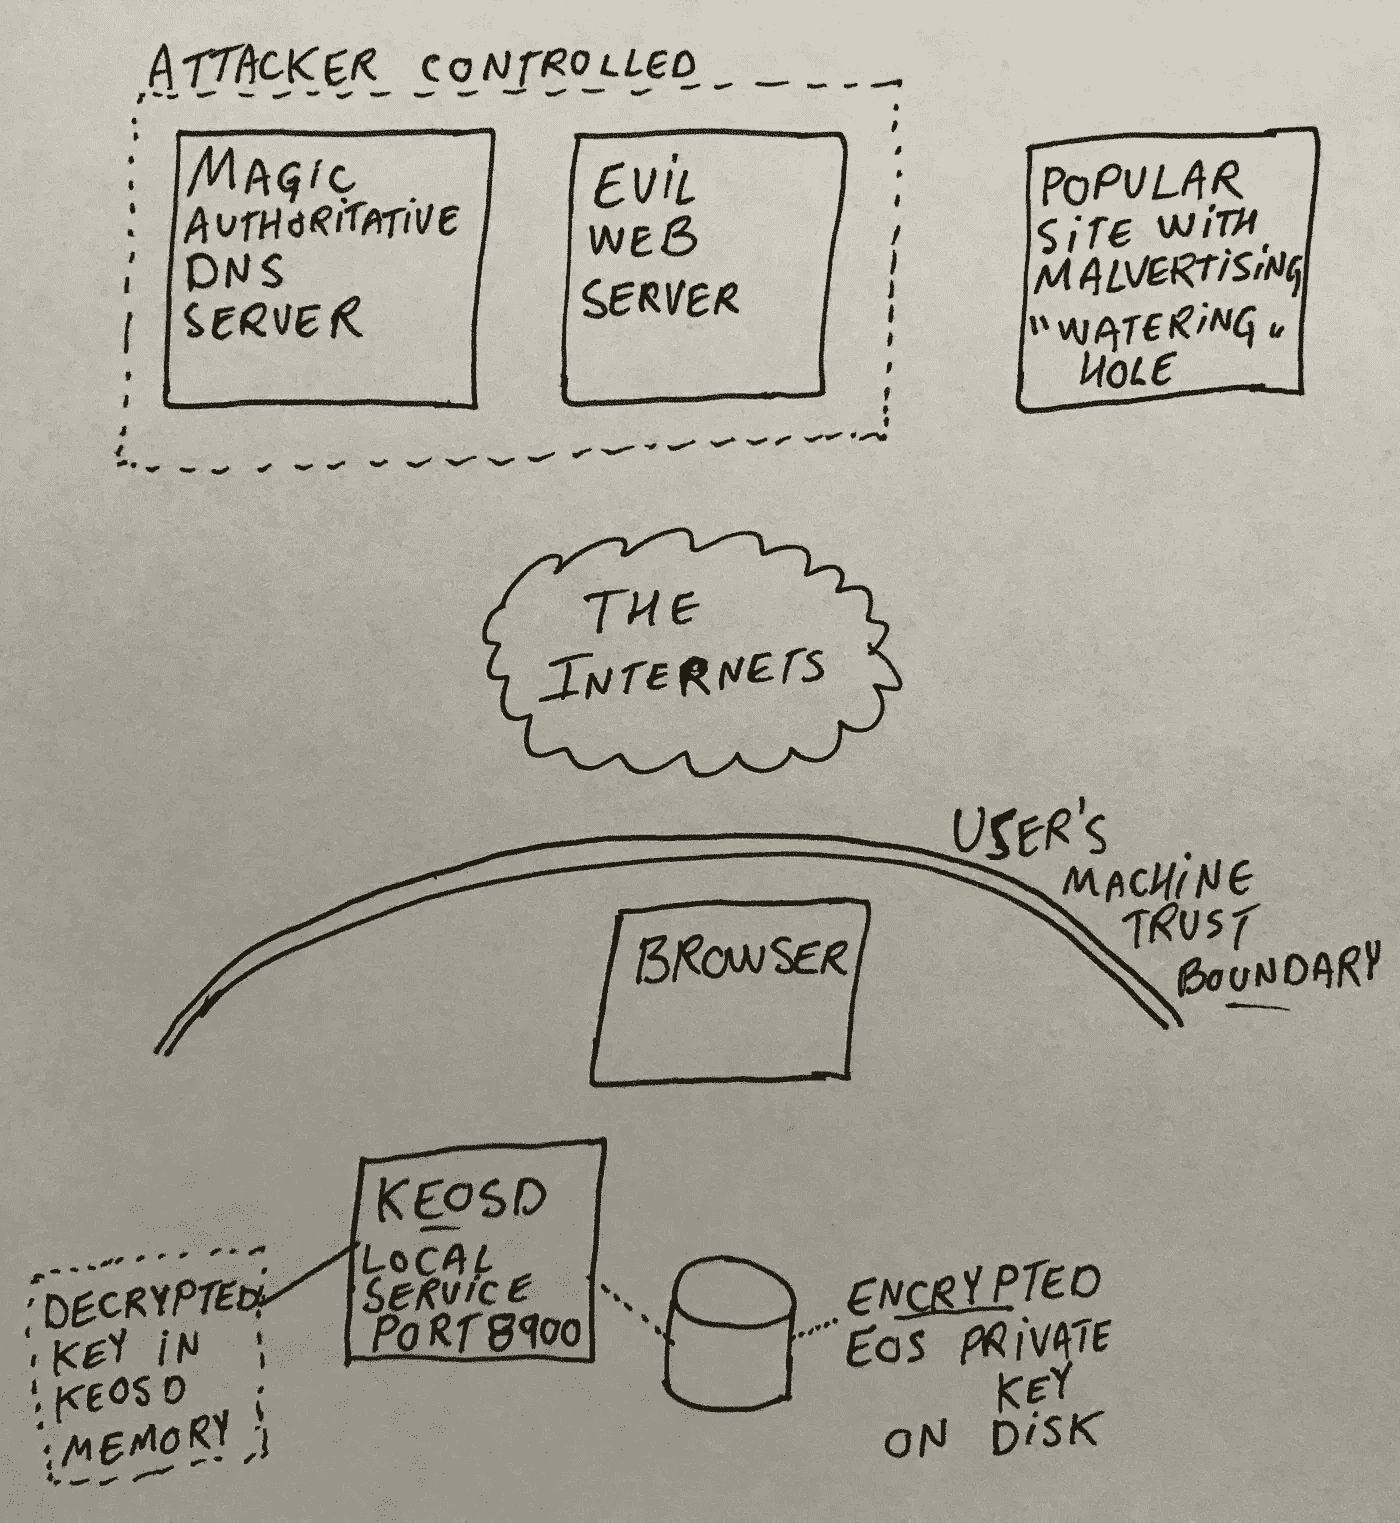 ATTACKER CONTROLLED
MAGIC
AUTHORITATIVE
DNS
SERVER
EVIL
WEB
SERVER
POPULAR
SITE WITH
MALVERTISING
"WATERING"
HOLE
THE
INTERNETS
USER'S
MACHINE
TRUST
BOUNDARY
BROWSER
KEOSD
LOCAL
SERVICE
PORT 8900
DECRYPTED
KEY IN
KEOSD
MEMORY
ENCRYPTED
EOS PRIVATE
KEY
ON DISK